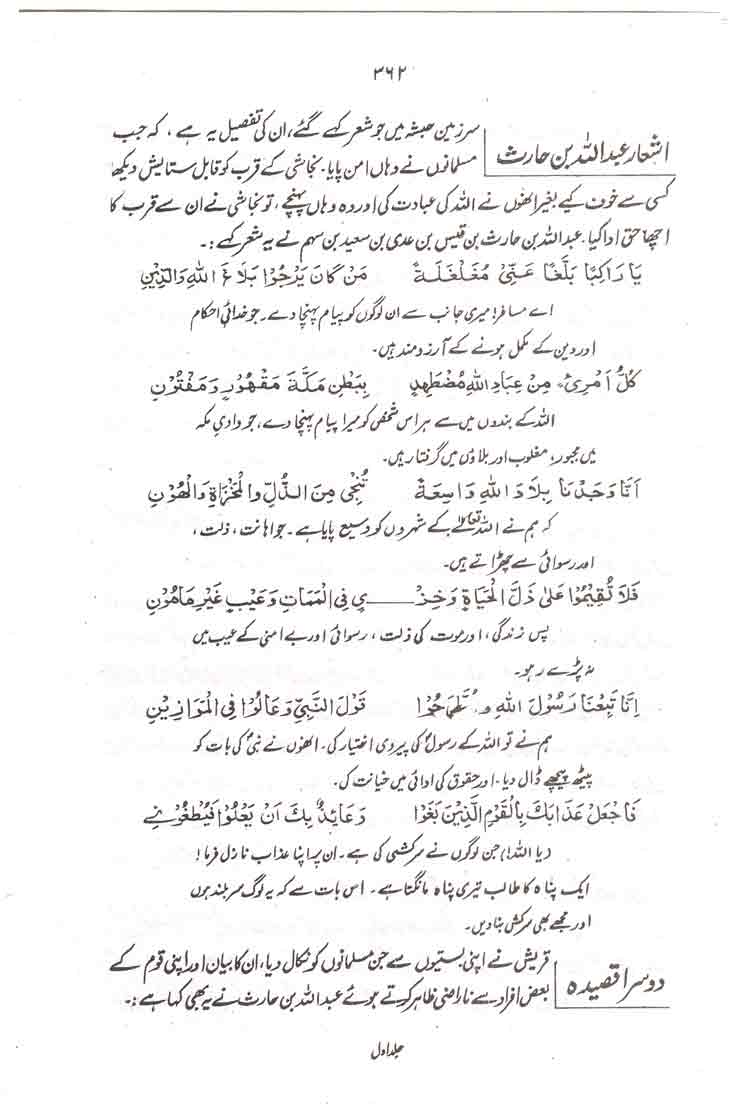 ۳۶۲
اشعار عبداللہ بن حارث
سرزمین حبشہ میں جو شعر کہے گئے، ان کی تفصیل یہ ہے، کہ جب
مسلمانوں نے وہاں امن پایا۔ نجاشی کے قرب کو قابل ستایش دیکھا
کسی سے خوف کیے بغیر انھوں نے اللہ کی عبادت کی اور وہ وہاں پہنچے، تو نجاشی نے ان سے قرب کا
اچھا حق ادا کیا۔ عبداللہ بن حارث بن قیس بن عدی بن سعید بن سہم نے یہ شعر کہے:۔
يَا رَاكِبًا بَلِّغًا عَنِّيْ مُغَلْغَلَةً مَنْ كَانَ يَرْجُوْا بَلَاغَ اللهِ وَالدِّيْنِ
اے مسافر! میری جانب سے ان لوگوں کو پیام پہنچا دے۔ جو خدائی احکام
اور دین کے مکمل ہونے کے آرزومند ہیں۔
كُلُّ امْرِئٍ مِنْ عِبَادِ اللهِ مُضْطَهِدٍ بِبَطْنِ مَكَّةَ مَقْهُوْرٍ وَمَفْتُوْنِ
اللہ کے بندوں میں سے ہر اس شخص کو میرا پیام پہنچا دے، جو وادیِ مکہ
میں مجبور، مغلوب اور بلاؤں میں گرفتار ہیں۔
اَنَّا وَجَدْنَا بِلَادَ اللهِ وَاسِعَةً تُنْجِيْ مِنَ الذُّلِّ وَالْمَخْزَاةِ وَالْهُوْنِ
کہ ہم نے اللہ تعالیٰ کے شہروں کو وسیع پایا ہے۔ جو اہانت، ذلت،
اور رسوائی سے چھڑاتے ہیں۔
فَلَا تُقِيْمُوْا عَلٰى ذُلِّ الْحَيَاةِ وَخِزْ ـــــيٍ فِي الْمَمَاتِ وَعَيْبٍ غَيْرِ مَامُوْنِ
پس زندگی، اور موت کی ذلت، رسوائی اور بے امنی کے عیب میں
نہ پڑے رہو۔
اِنَّا تَبِعْنَا رَسُوْلَ اللهِ وَاطَّرَحُوْا قَوْلَ النَّبِيِّ وَعَالُوْا فِي الْمَوَازِيْنِ
ہم نے تو اللہ کے رسولؐ کی پیروی اختیار کی۔ انھوں نے نبیؐ کی بات کو
پیٹھ پیچھے ڈال دیا۔ اور حقوق کی ادائی میں خیانت کی۔
فَاجْعَلْ عَذَابَكَ بِالْقَوْمِ الَّذِيْنَ بَغَوْا وَعَائِذٌ بِكَ اَنْ يَعْلُوْا فَيُطْغُوْنِيْ
(یا اللہ!) جن لوگوں نے سرکشی کی ہے۔ ان پر اپنا عذاب نازل فرما!
ایک پناہ کا طالب تیری پناہ مانگتا ہے۔ اس بات سے کہ یہ لوگ سربلند ہوں
اور مجھے بھی سرکش بنا دیں۔
دوسرا قصیدہ
قریش نے اپنی بستیوں سے جن مسلمانوں کو نکال دیا، ان کا بیان اور اپنی قوم کے
بعض افراد سے ناراضی ظاہر کرتے ہوئے عبداللہ بن حارث نے یہ بھی کہا ہے:۔
جلد اول